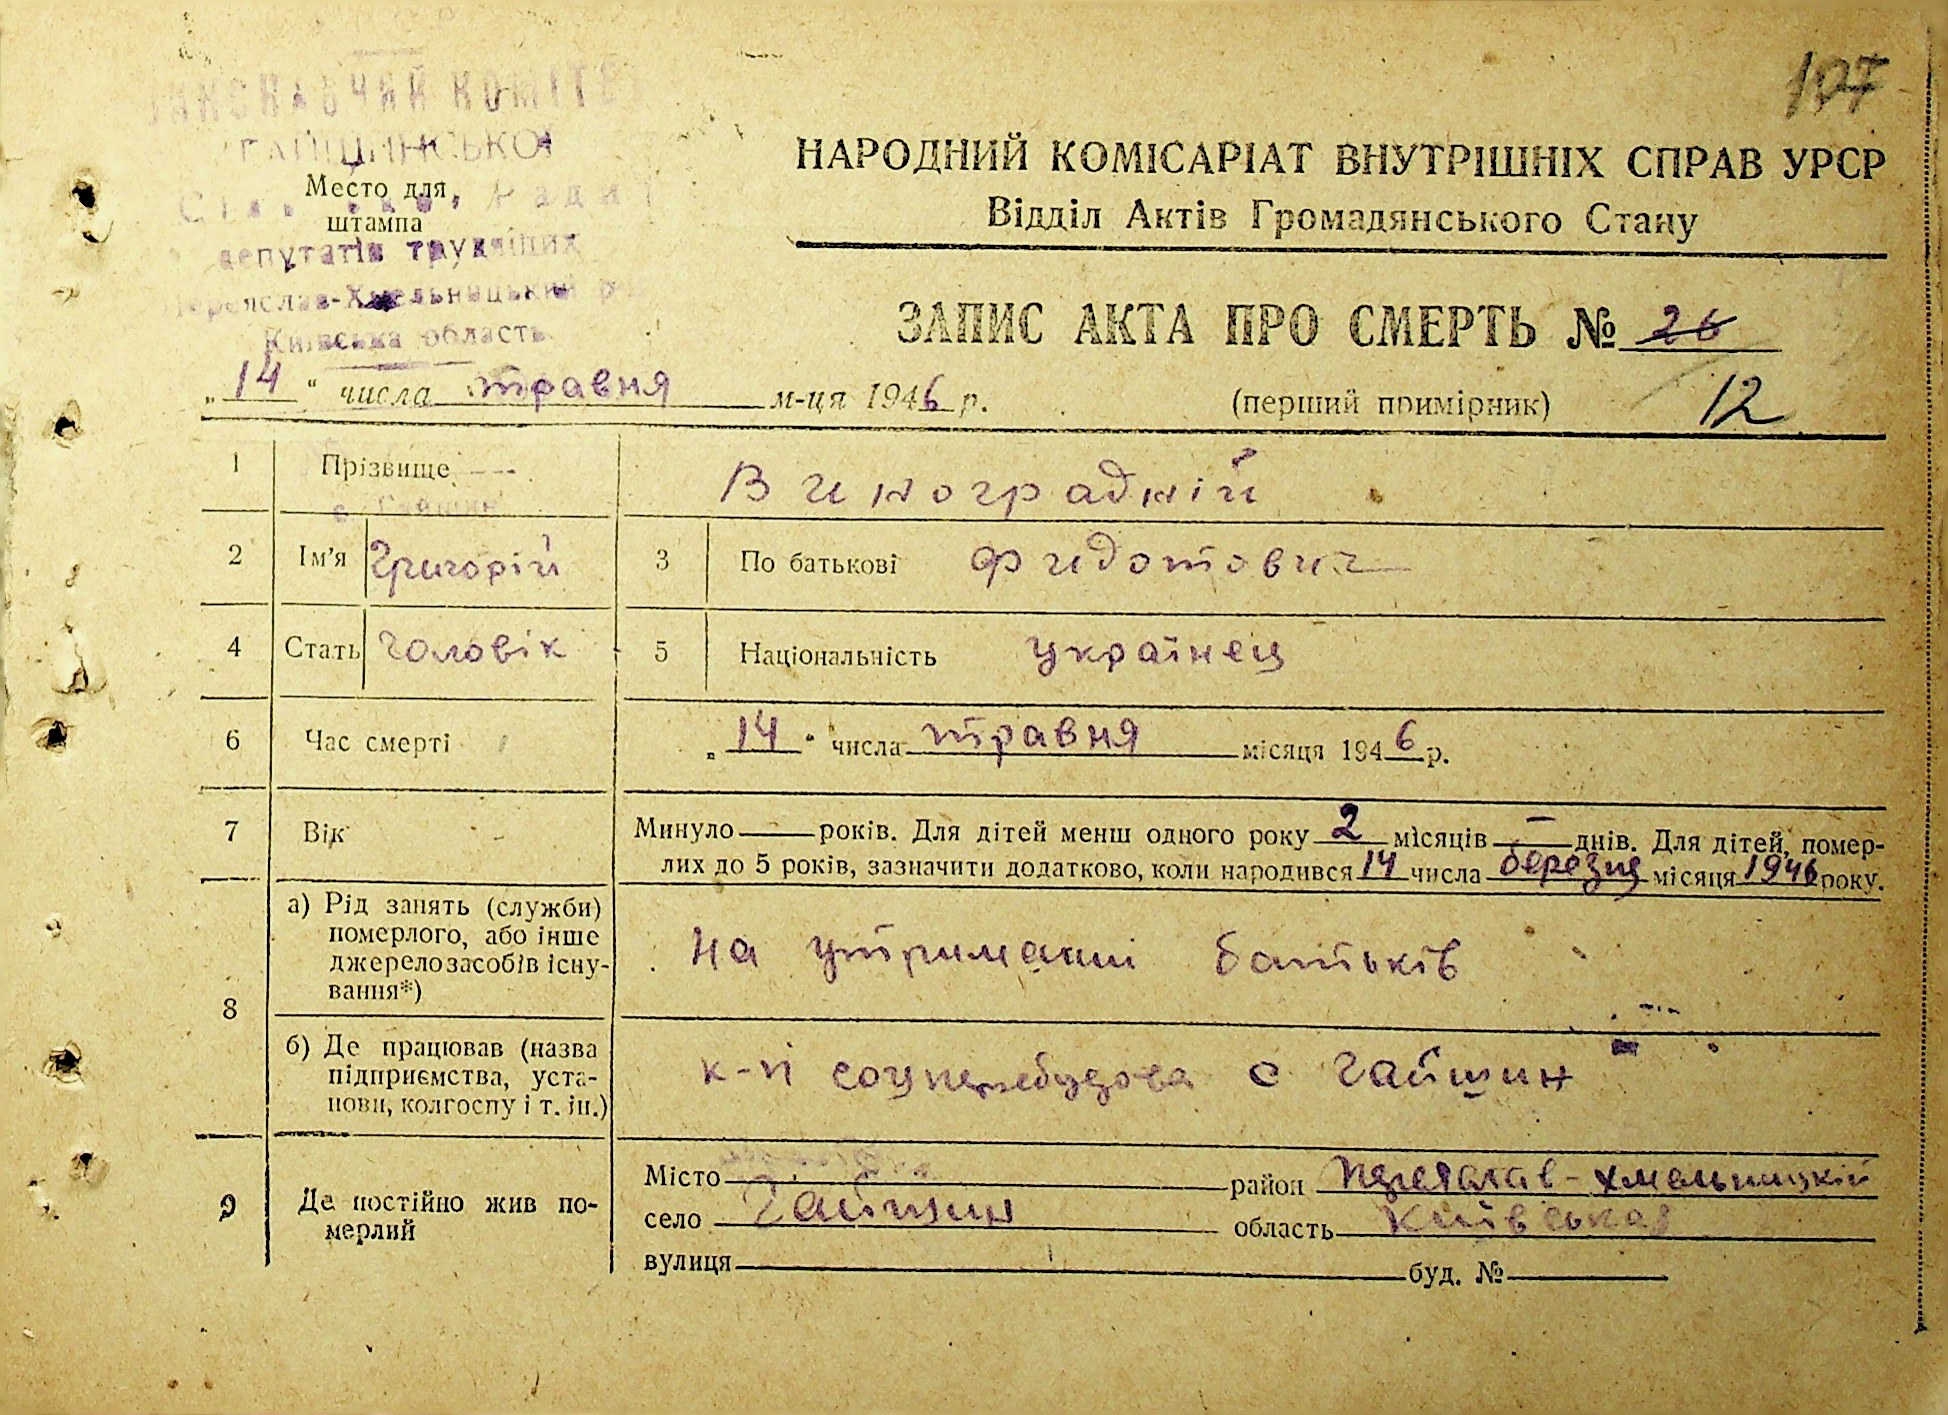 107
ВИКОНАВЧИЙ КОМІТЕ
ГАЙШИНСЬКОЇ
Место для
штампа
депутатів трудящих
Переяслав-Хмельницький р
Київська область
НАРОДНИЙ КОМІСАРІАТ ВНУТРІШНІХ СПРАВ УРСР
Відділ Актів Громадянського Стану
ЗАПИС АКТА ПРО СМЕРТЬ № 26
„14“ числа травня м-ця 1946 р. (перший примірник) 12
1 Прізвище Виноградній
с. Гайшин
2 Ім'я Григорій 3 По батькові Фидотович
4 Стать чоловік 5 Національність українец
6 Час смерті „14“ числа травня місяця 1946 р.
7 Вік Минуло — років. Для дітей менш одного року 2 місяців — днів. Для дітей, помер-
лих до 5 років, зазначити додатково, коли народився 14 числа березня місяця 1946 року.
8 а) Рід занять (служби)
померлого, або інше
джерело засобів існу-
вання*)
на утриманні батьків
б) Де працював (назва
підприємства, уста-
нови, колгоспу і т. ін.)
к-п соцперебудова с Гайшин
9 Де постійно жив по-
мерлий
Місто район Переяслав-Хмельницкій
село Гайшин область Київська
вулиця буд. №